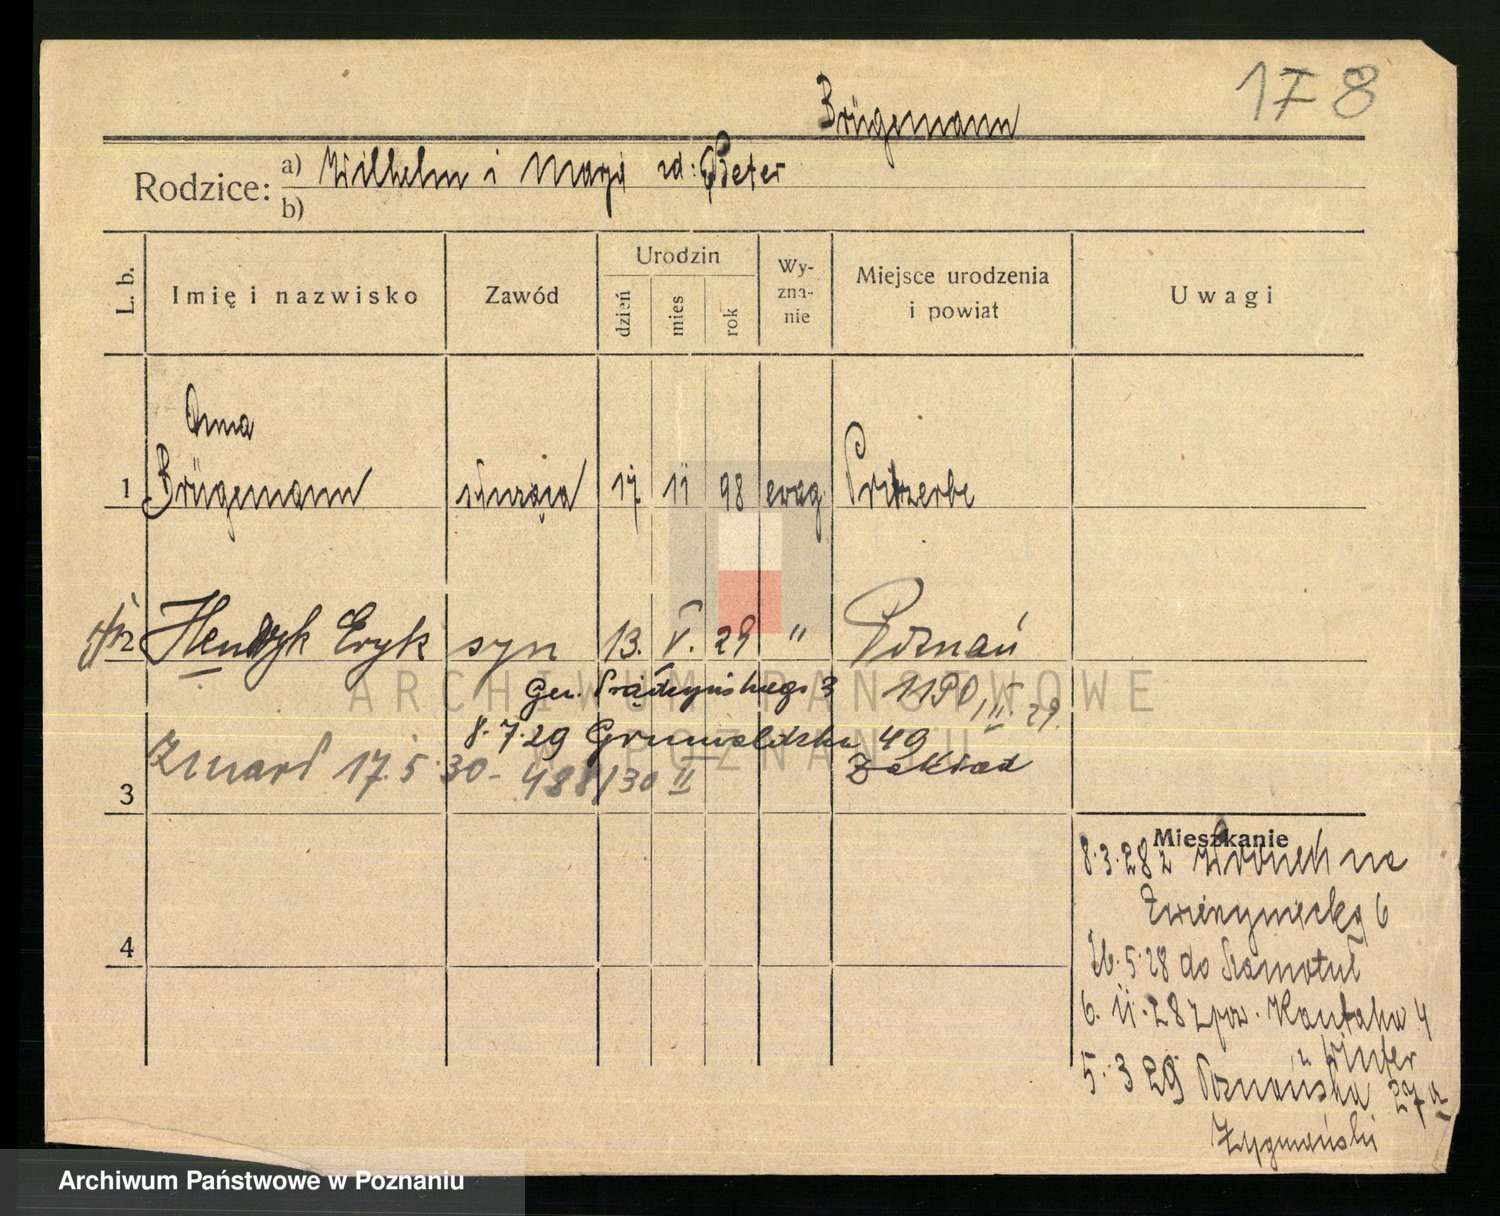 178
Brügemann
Rodzice: a) Wilhelm i Marja zd: Peter
b)
L. b.
Imię i nazwisko
Zawód
Urodzin
dzień
mies
rok
Wy-
zna-
nie
Miejsce urodzenia
i powiat
Uwagi
Anna
1 Brügemann 17 11 98 ewag. Pritzerbe
2 Henryk Eryk syn 13. V. 29 " Poznań
Gen. Prądzyńskiego 3
8.7.29 Grunwaldzka 49
Zakład
Zmarł 17.5.30 - 488/30 II
3
Mieszkanie
8.3.28 z Wronek na
Zwierzyniecką 6
26.5.28 do Szamotuł
6. 11. 28 z pow. Kantaka 4
u Winter
5. 3 29 Poznańska 27a
Zygmański
4
ARCHIWUM PAŃSTWOWE
W POZNANIU
Archiwum Państwowe w Poznaniu